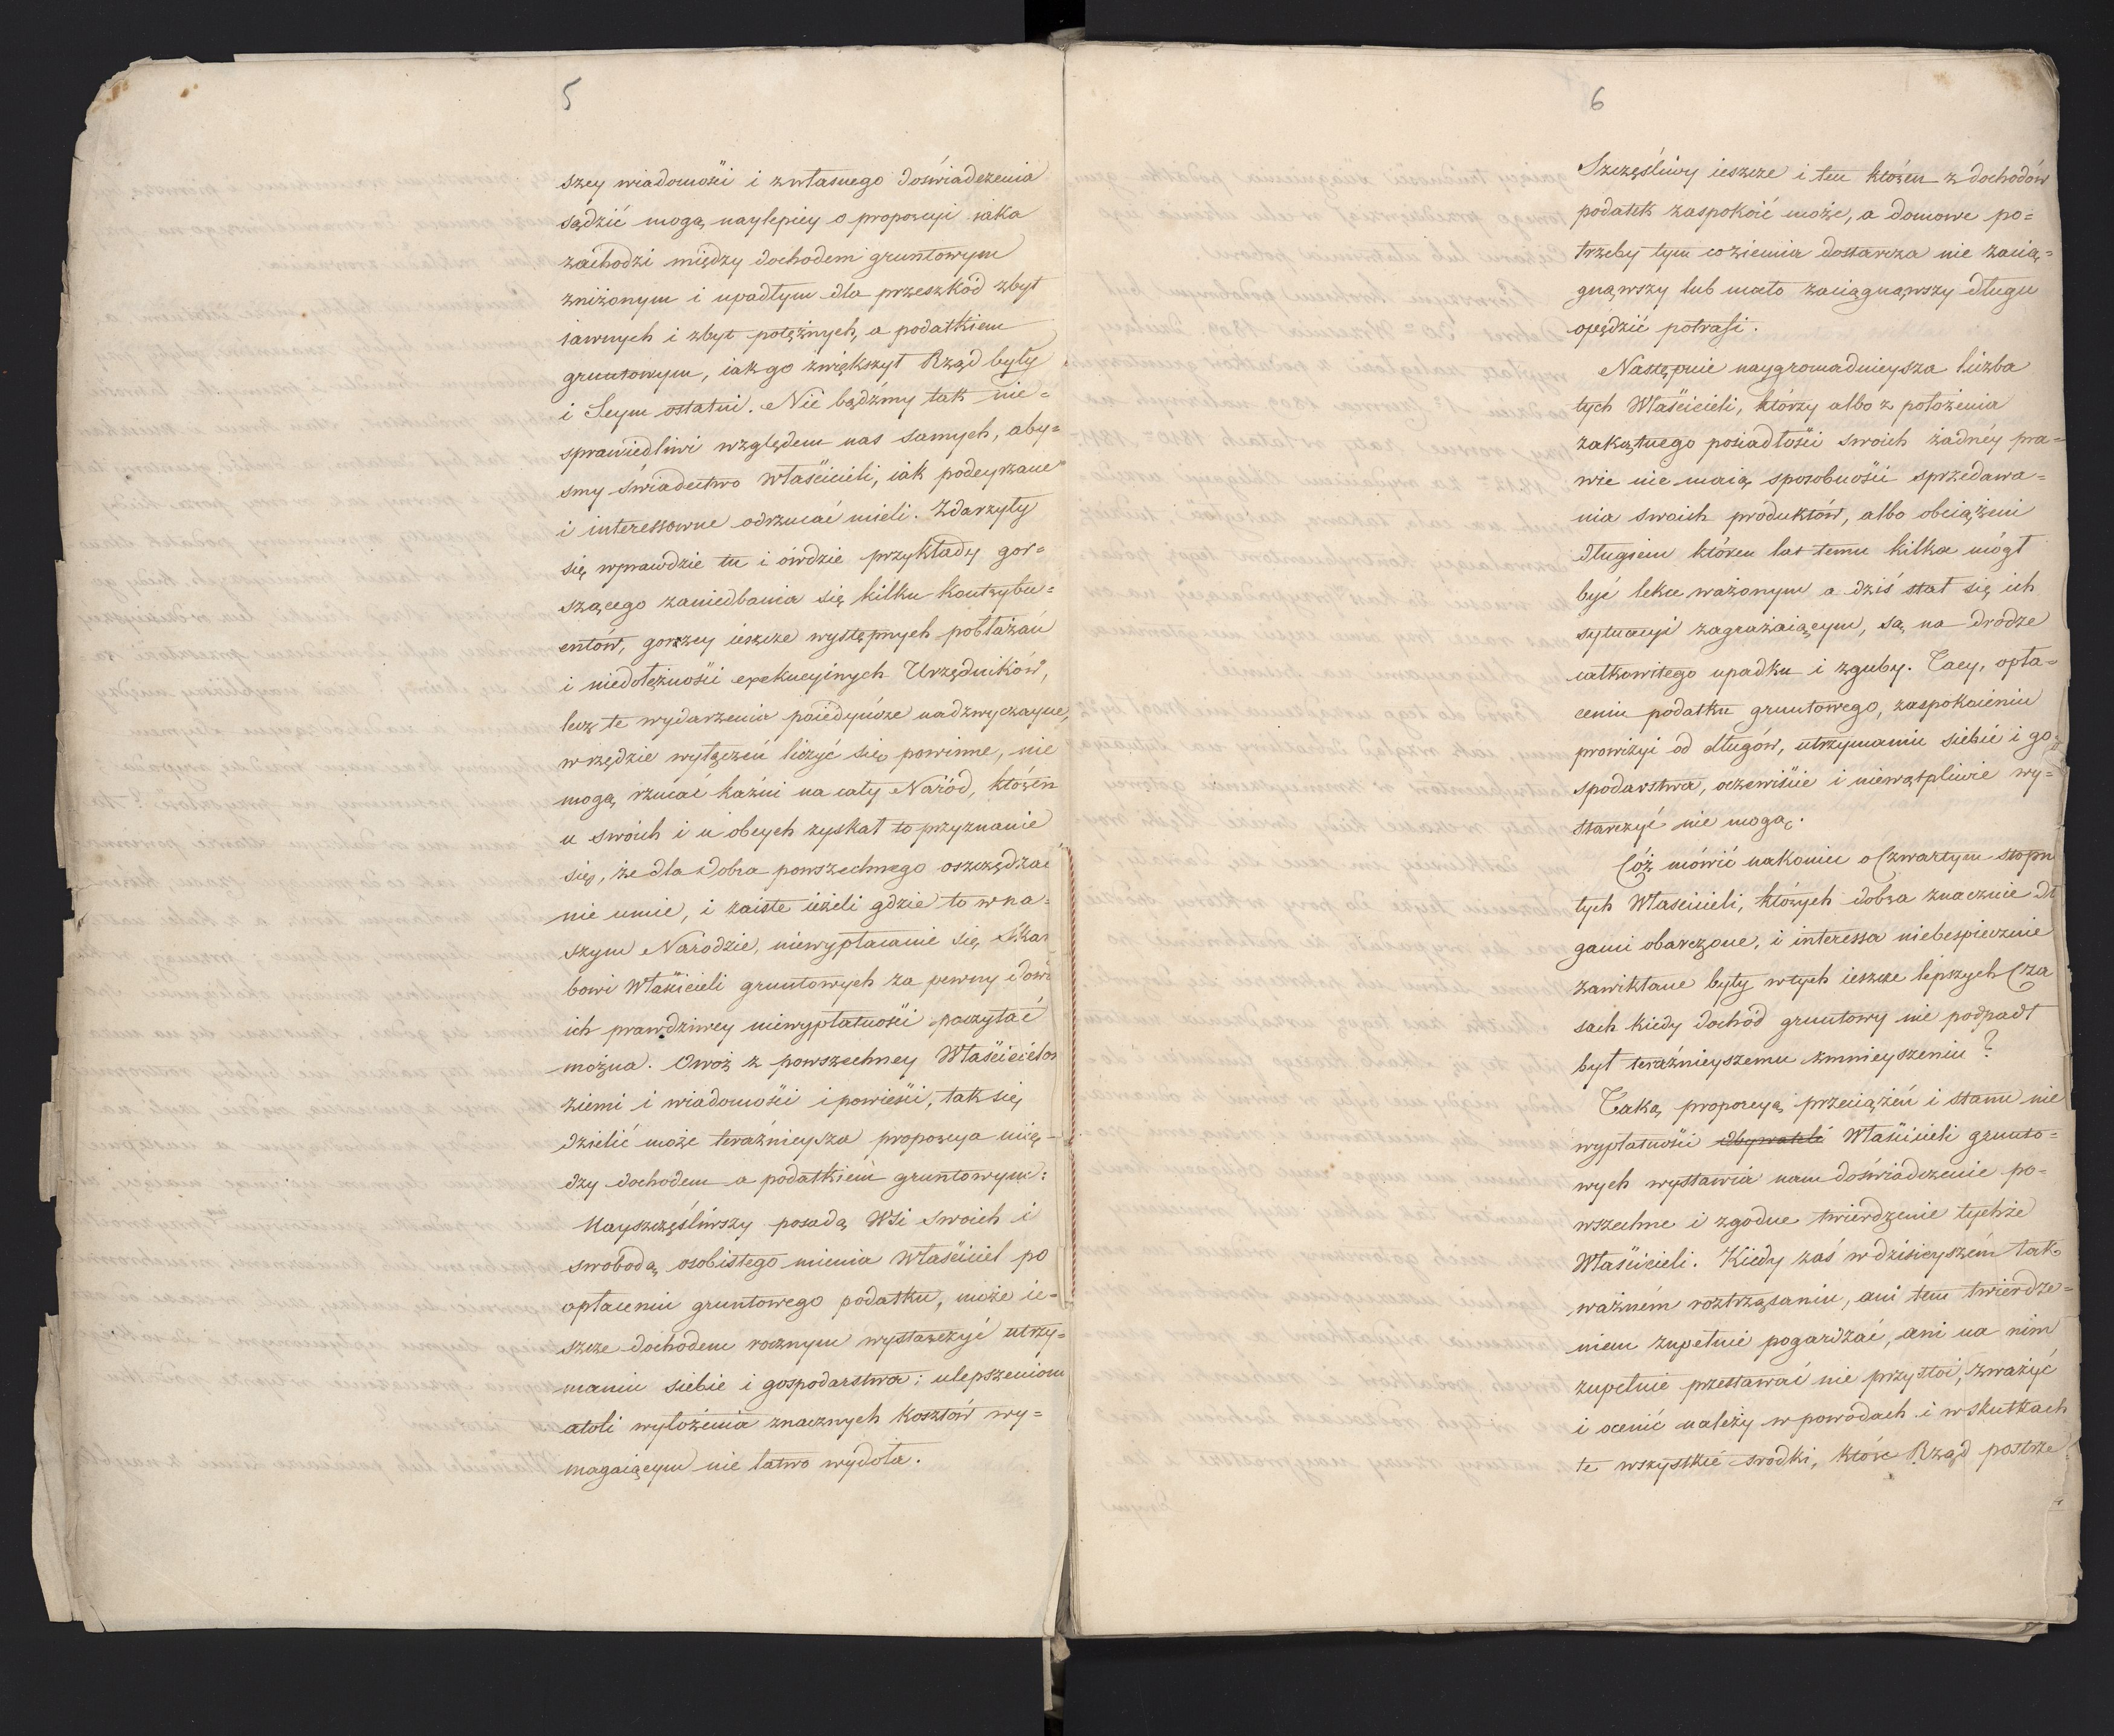 5
szey wiadomości i z własnego doświadczenia
sądzić mogą naylepiey o proporcyi iaka
zachodzi między dochodem gruntowym
zniżonym i upadłym dla przeszkód zbyt
iawnych i zbyt potężnych, a podatkiem
gruntowym, iak go zwiększył Rząd były
i Seym ostatni. Nie bądźmy tak nie=
sprawiedliwi względem nas samych, aby=
smy świadectwo Właścicieli, iak podeyrzane
i interessowne odrzucać mieli. Zdarzyły
się wprawdzie tu i ówdzie przykłady gor=
szącego zaniedbania się kilku kontrybu=
entów, gorszey ieszcze występnych pobłażań
i niedołężności exekucyinych Urzędników,
lecz te wydarzenia poiedyńcze nadzwyczayne,
w rzędzie wyłączeń liczyć się powinne, nie
mogą rzucać kaźni na cały Naród, którén
u swoich i u obcych zyskał to przyznanie
się, że dla dobra powszechnego oszczędzać
nie umie, i zaiste ieżeli gdzie to w na=
szym Narodzie, niewypłacanie się Skar
bowi Właścicieli gruntowych za pewny dowó
ich prawdziwey niewypłatności poczytać
można. Owoż z powszechney Właścicielów
ziemi i wiadomości i powieści, tak się
dzielić może teraźnieysza proporcya mię=
dzy dochodem a podatkiem gruntowym:
Nayszczęśliwszy posadą Wsi swoich i
swobodą osobistego mienia Właściciel po
opłaceniu gruntowego podatku, może ie=
szcze dochodem rocznym wystarczyć utrzy=
maniu siebie i gospodarstwa; ulepszeniom
atoli wyłożenia znacznych kosztów wy=
magaiącym nie łatwo wydoła.
6
Szczęśliwy ieszcze i ten którén z dochodów
podatek zaspokoić może, a domowe po=
trzeby tym co ziemia dostarcza nie zacią=
gnąwszy lub mało zaciągnąwszy długu
opędzić potrafi.
Następnie naygromadnieysza liczba
tych Właścicieli, którzy albo z położenia
zakątnego posiadłości swoich żadnéy pra=
wie nie maią sposobności sprzedawa=
nia swoich produktów, albo obciążeni
długiem którén lat temu kilka mógł
być lekce ważonym a dziś stał się ich
sytuacyi zagrażaiącym, są na drodze
całkowitego upadku i zguby. Tacy, opła=
ceniu podatku gruntowego, zaspokoieniu
prowizyi od długów, utrzymaniu siebie i go=
spodarstwa, oczewiście i niewątpliwie wy=
starczyć nie mogą.
Cóż mówić nakoniec o Czwartym stopn
tych Właścicieli, których dobra znacznie dł
gami obarczone, i interessa niebespiecznie
zawikłane były w tych ieszcze lepszych Cza
sach kiedy dochód gruntowy nie podpadł
był teraźnieyszemu zmnieyszeniu?
Taką proporcyą przeciążeń i stanu nie
wypłatności Obywateli Właścicieli grunto=
wych wystawia nam doświadczenie po=
wszechne i zgodne twierdzenie tychże
Właścicieli. Kiedy zaś w dzisieyszém tak
ważném roztrząsaniu, ani tém twierdze=
niem zupełnie pogardzać, ani na nim
zupełnie przestawać nie przystoi, zważyć
i ocenić należy w powodach i w skutkach
te wszystkie środki, które Rząd postrze